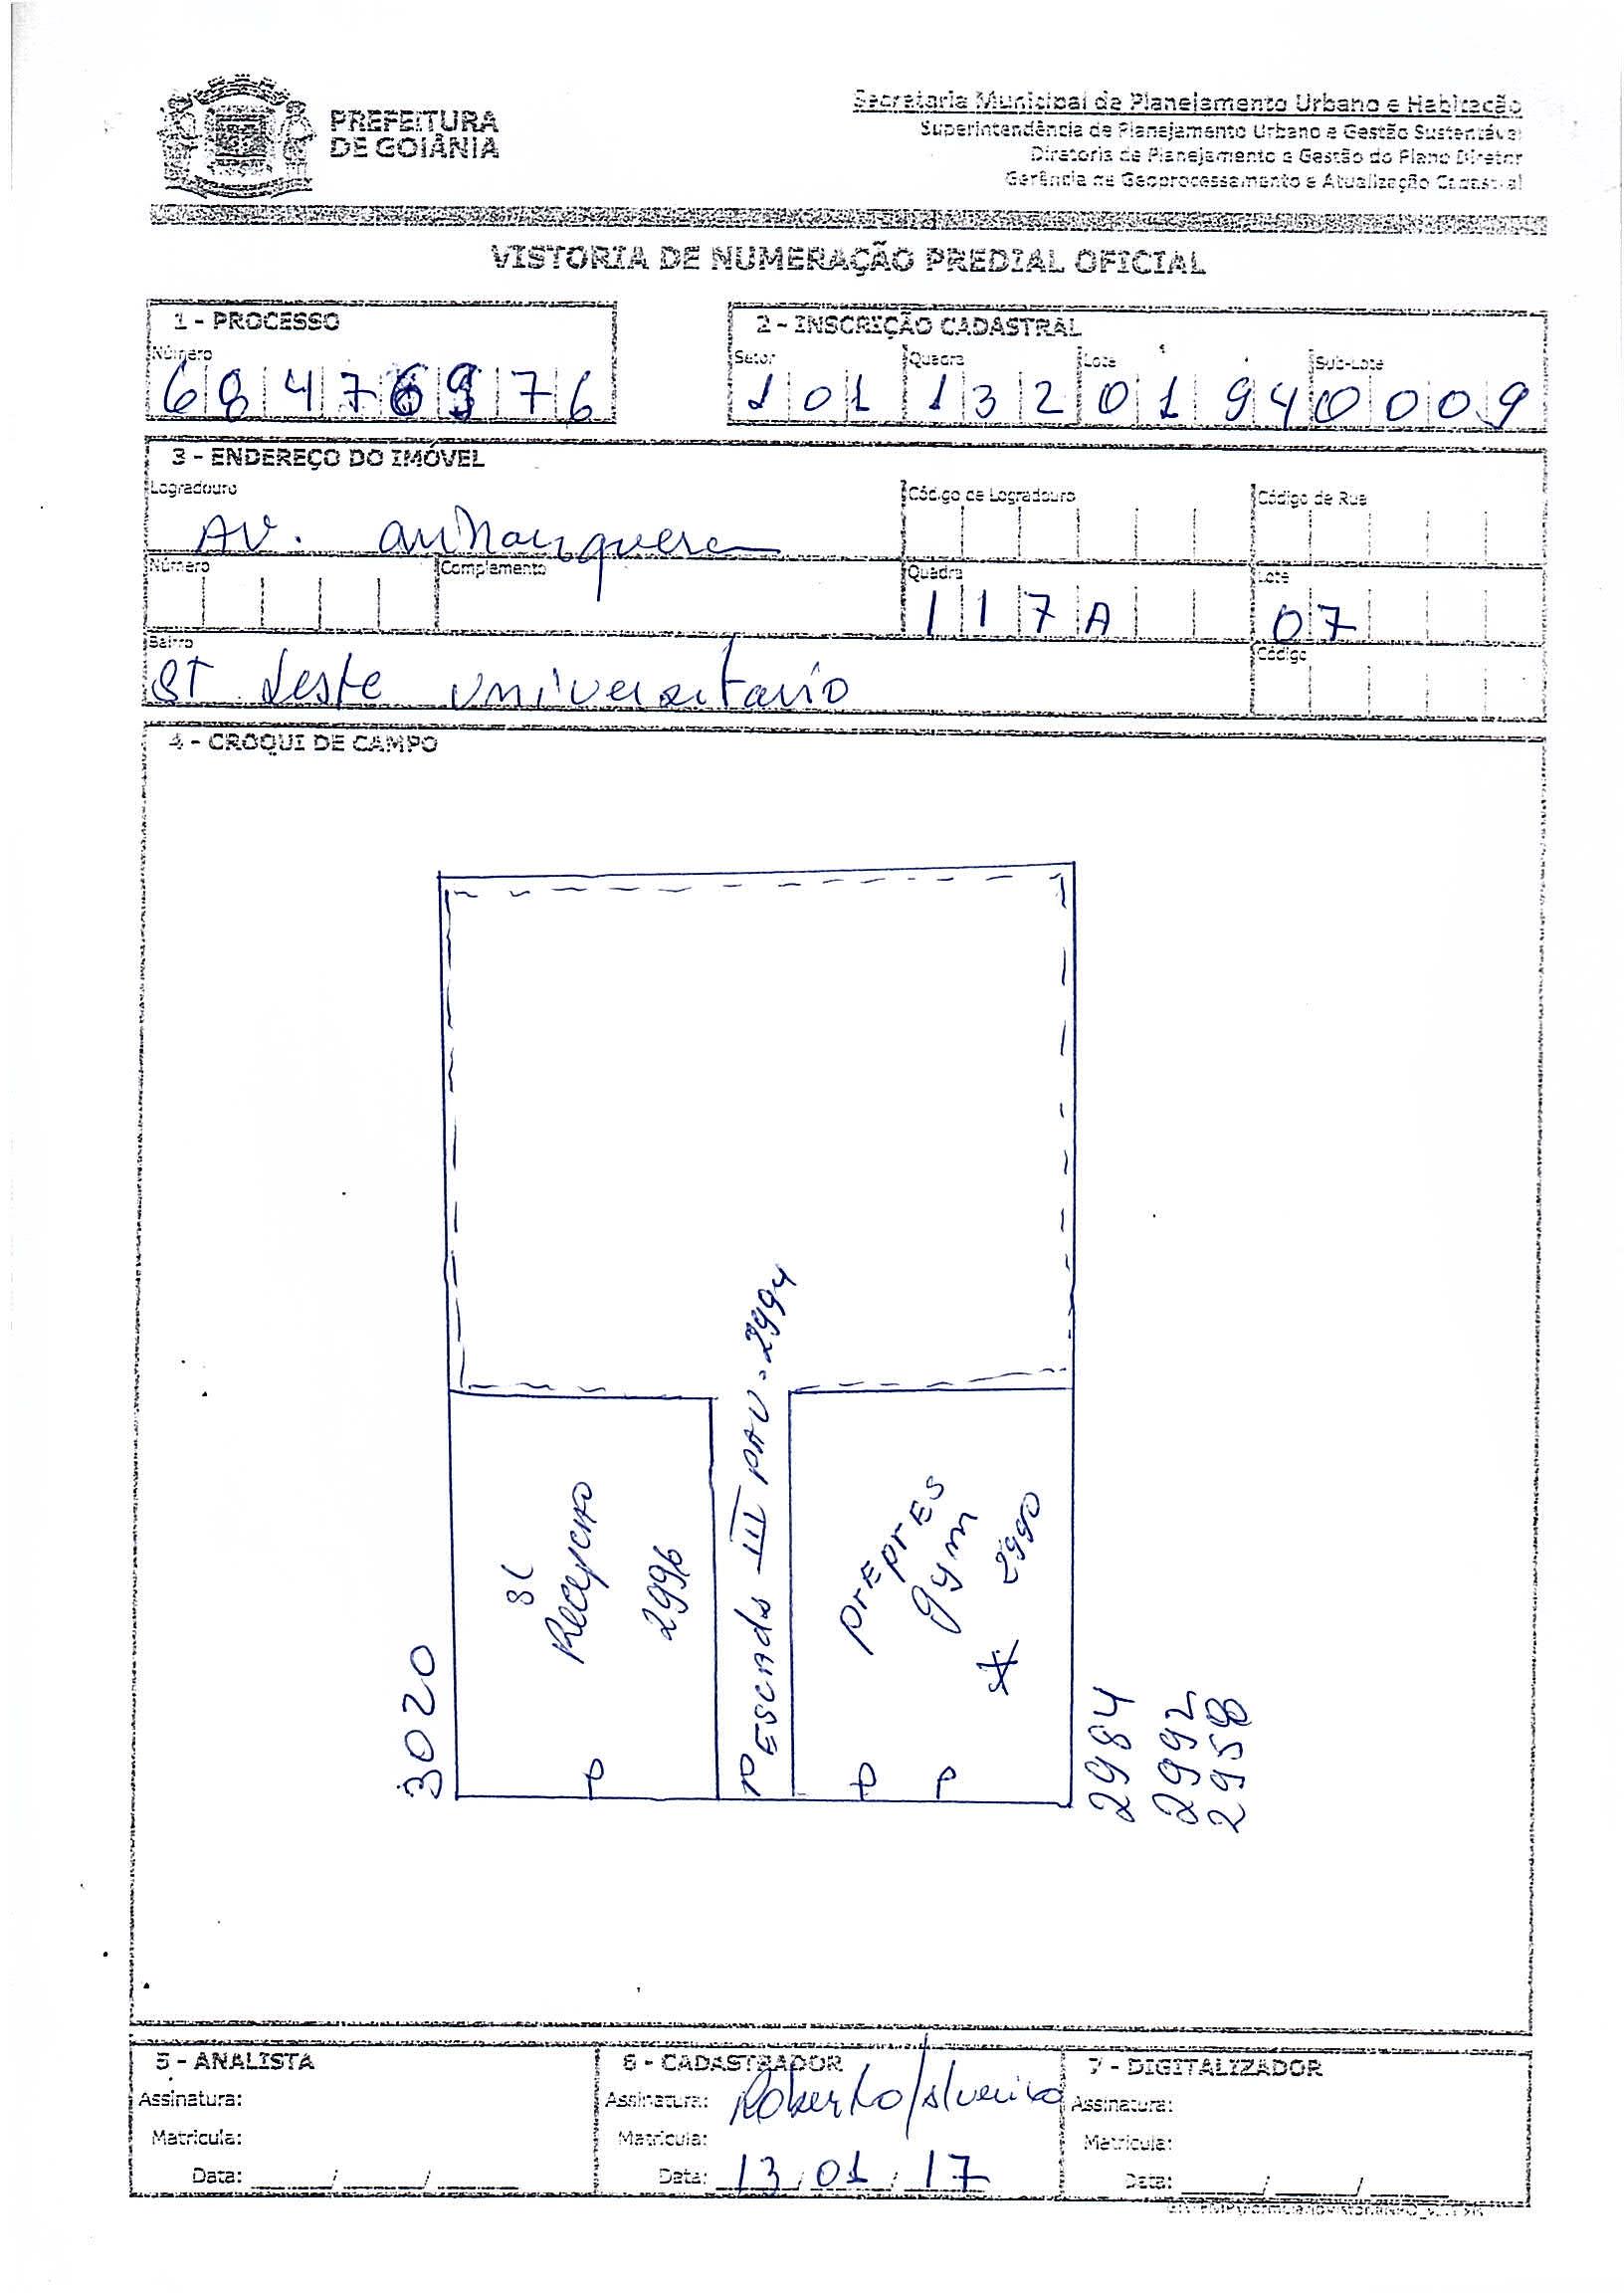 PREFEITURA
DE GOIÂNIA
Secretaria Municipal de Planejamento Urbano e Habitação
Superintendência de Planejamento Urbano e Gestão Sustentável
Diretoria de Planejamento e Gestão do Plano Diretor
Gerência de Geoprocessamento e Atualização Cadastral
VISTORIA DE NUMERAÇÃO PREDIAL OFICIAL
1 - PROCESSO
Número
2 - INSCRIÇÃO CADASTRAL
Setor Quadra Lote Sub-Lote
101 132 0194 0009
3 - ENDEREÇO DO IMÓVEL
Logradouro Código de Logradouro Código de Rua
AV. anhanguera
Número Complemento Quadra Lote
117A 07
Bairro Código
ST Leste universitario
4 - CROQUI DE CAMPO
3020
sl
Recepção
2996
P
P Escada III PAV. 2994
PrEprES
gym
* 2990
P P
2984
2992
2958
5 - ANALISTA
Assinatura:
Matrícula:
Data: / /
6 - CADASTRADOR
Assinatura: Roberto Silveira
Matrícula:
Data: 13/01/17
7 - DIGITALIZADOR
Assinatura:
Matrícula:
Data: / /